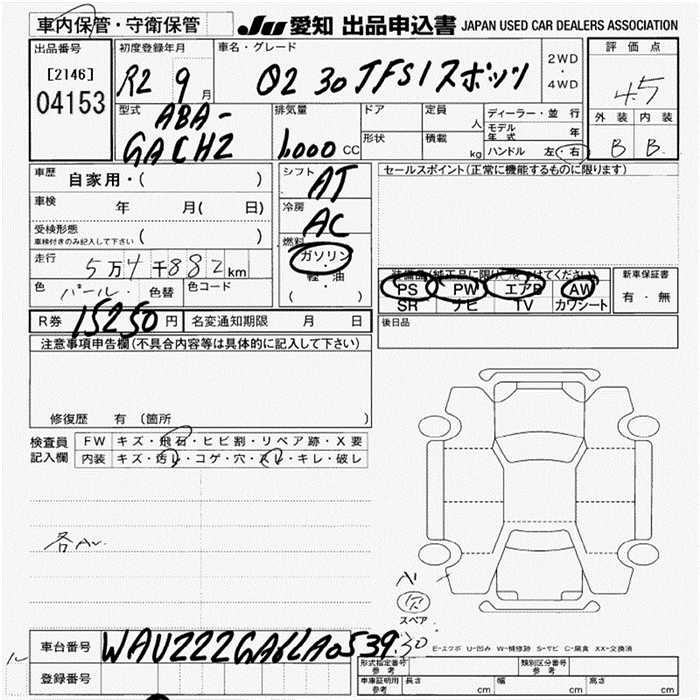 車内保管・守衛保管
JU 愛知 出品申込書 JAPAN USED CAR DEALERS ASSOCIATION
出品番号
[2146]
04153
初度登録年月
R2 9月
車名・グレード
Q2 30 TFSI スポーツ
2WD
・
4WD
評価点
4.5
外装 内装
B B
型式
ABA-
GACHZ
排気量
1,000 CC
ドア
定員
人
形状
積載
kg
ディーラー・並行
モデル年式 年
ハンドル 左・右
車歴
自家用・( )
車検 年 月( 日)
受検形態
車検付きのみ記入して下さい ( )
走行
5万4千882km
色 パール 色替 色コード
R券 15250円 名変通知期限 月 日
シフト
AT
冷房
AC
燃料
ガソリン
・
軽・油
( )
セールスポイント(正常に機能するものに限ります)
装備品(純正品に限り○をつけてください)
PS PW エアB AW
SR ナビ TV カワシート
新車保証書
有・無
後日品
注意事項申告欄(不具合内容等は具体的に記入して下さい)
修復歴 有(箇所
検査員
記入欄
FW キズ・飛石・ヒビ割・リペア跡・X要
内装 キズ・汚レ・コゲ・穴・スレ・キレ・破レ
各AU
A1
スペア
30
E-エクボ U-凹み W-補修跡 S-サビ C-腐食 XX-交換済
車台番号 WAUZZZGA6LA053930
登録番号
形式指定番号
参考
類別区分番号
参考
車庫証明用
参考
長さ cm 幅 cm 高さ cm